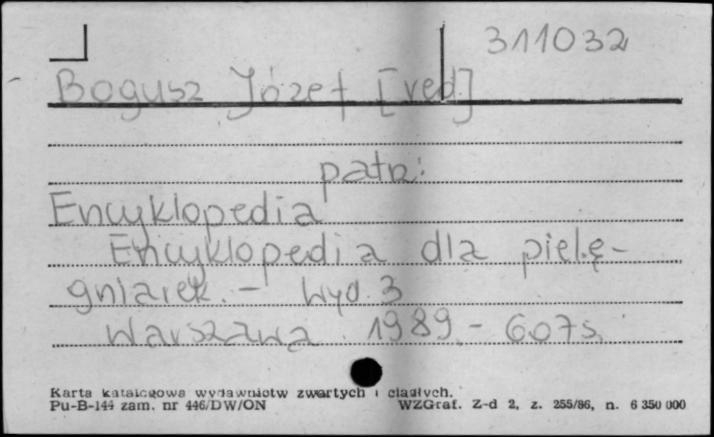 311032
Bogusz Józef [red.]
patrz:
Encyklopedia
Encyklopedia dla pielę-
gniarek. - Wyd. 3
Warszawa 1989. - 607 s.
Karta katalogowa wydawnictw zwartych i ciągłych.
Pu-B-144 zam. nr 446/DW/ON WZGraf. Z-d 2, z. 255/86, n. 6 350 000